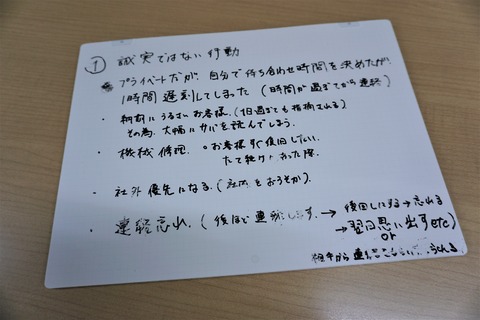 ① 誠実ではない行動
プライベートだが、自分で待ち合わせ時間を決めたが
1時間遅刻してしまった (時間が過ぎてから連絡)
・納期にうるさいお客様. (1日過ぎても指摘される)
その為、大幅にサバを読んでしまう.
・機械修理. 。お客様すぐ復旧したい.
たて続け た際.
・社外優先になる. (社内をおろそか).
・連絡忘れ. (後ほど連絡します. → 後回しにする → 忘れる
→ 翌日思い出す etc)
or
相手から連